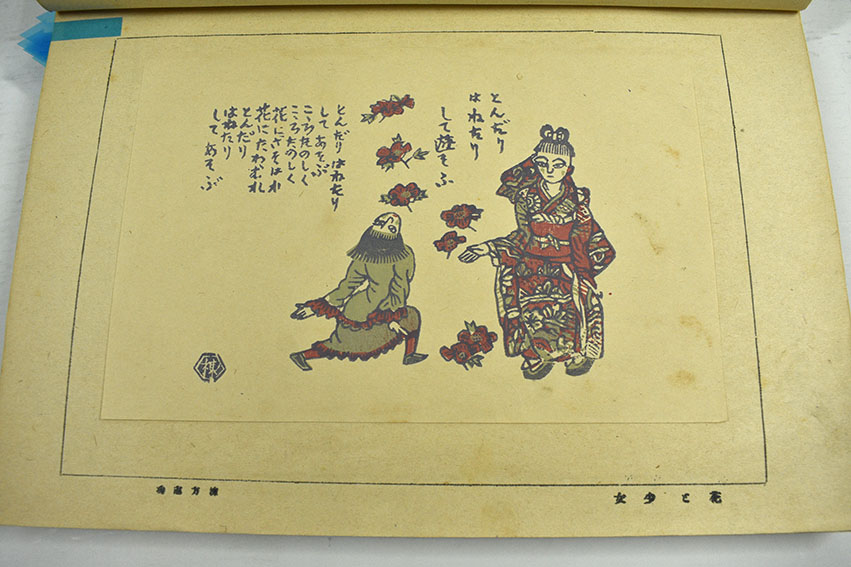 とんだり
はねたり
して遊そふ
とんだり はねたり
してあそぶ
こころたのしく
こころたのしく
花にさそはれ
花にたわむれ
とんだり
はねたり
してあそぶ
花と少女
棟方志功